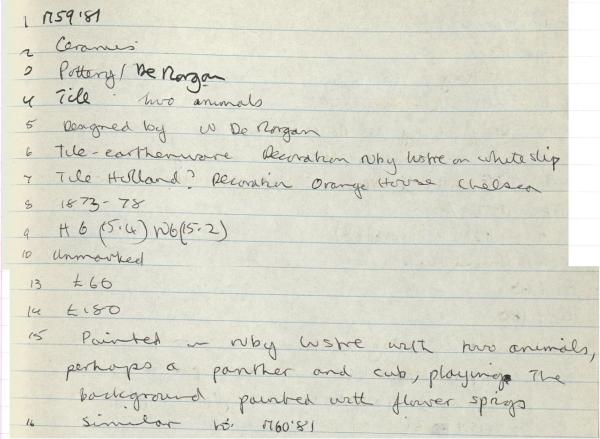 1 M59'81
2 Ceramics
3 Pottery/De Morgan
4 Tile two animals
5 Designed by W De Morgan
6 Tile-earthenware Decoration ruby lustre on white slip
7 Tile Holland? Decoration Orange House Chelsea
8 1873-78
9 H 6 (15.4) W6(15.2)
10 Unmarked
13 £60
14 £180
15 Painted in ruby lustre with two animals,
perhaps a panther and cub, playing. The
background painted with flower sprigs
16 Similar to: M60'81